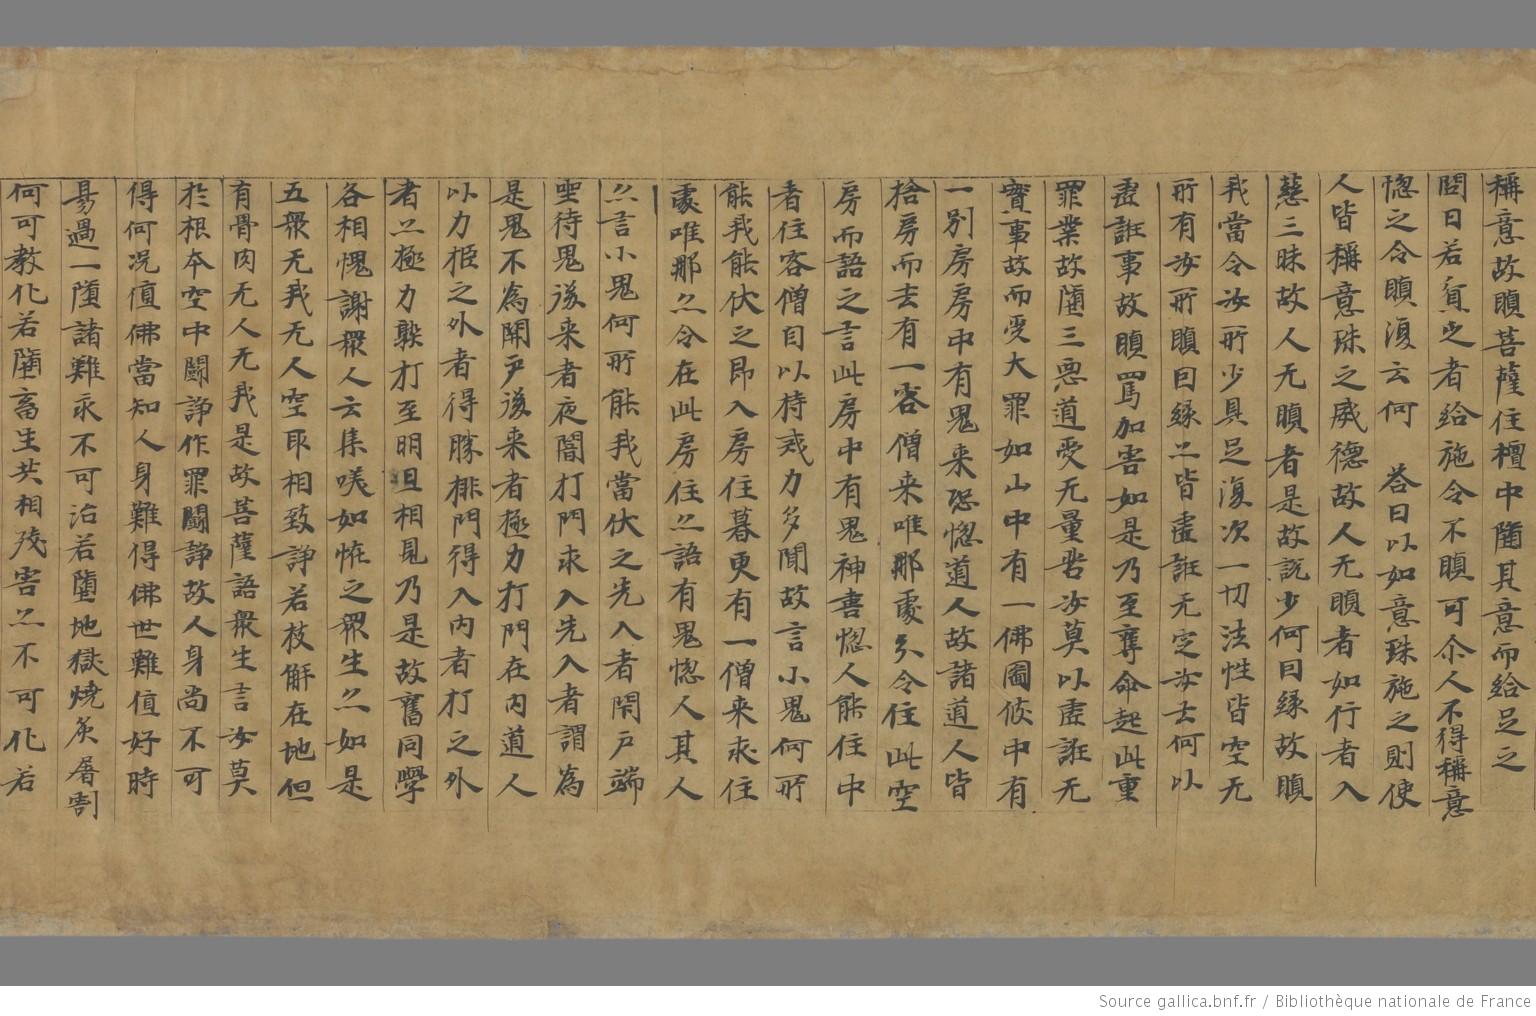 稱意故瞋菩薩住檀中隨其意而給足之
問曰若貧乏者給施令不瞋可尒人不得稱意
惚之令瞋復云何 荅曰以如意珠施之則使
人皆稱意珠之威德故人无瞋者如行者入
慈三昧故人无瞋者是故說少何曰緣故瞋
我當令汝所少具足復次一切法性皆空无
所有汝所瞋曰緣亦皆虛誑无定汝云何以
虛誑事故瞋罵加害如是乃至奪命起此重
罪業故墮三惡道受无量苦汝莫以虛誑无
實事故而受大罪如山中有一佛圖彼中有
一別房房中有鬼来恐惚道人故諸道人皆
捨房而去有一客僧来唯那處分令住此空
房而語之言此房中有鬼神喜惚人能住中
者住客僧自以持戒力多聞故言小鬼何所
能我能伏之即入房住暮更有一僧来求住
處唯那亦令在此房住亦語有鬼惚人其人
亦言小鬼何所能我當伏之先入者閇戶端
坐待鬼後来者夜闇打門求入先入者謂為
是鬼不為開戶後来者極力打門在內道人
以力拒之外者得勝排門得入內者打之外
者亦極力熟打至明旦相見乃是故舊同學
各相愧謝眾人云集咲如恠之眾生亦如是
五眾无我无人空取相致諍若枝解在地但
有骨肉无人无我是故菩薩語眾生言汝莫
於根本空中鬪諍作罪鬪諍故人身尚不可
得何況值佛當知人身難得佛世難值好時
易過一墮諸難永不可治若墮地獄燒炙屠割
何可教化若墮畜生共相殘害亦不可化若
Source gallica.bnf.fr / Bibliothèque nationale de France